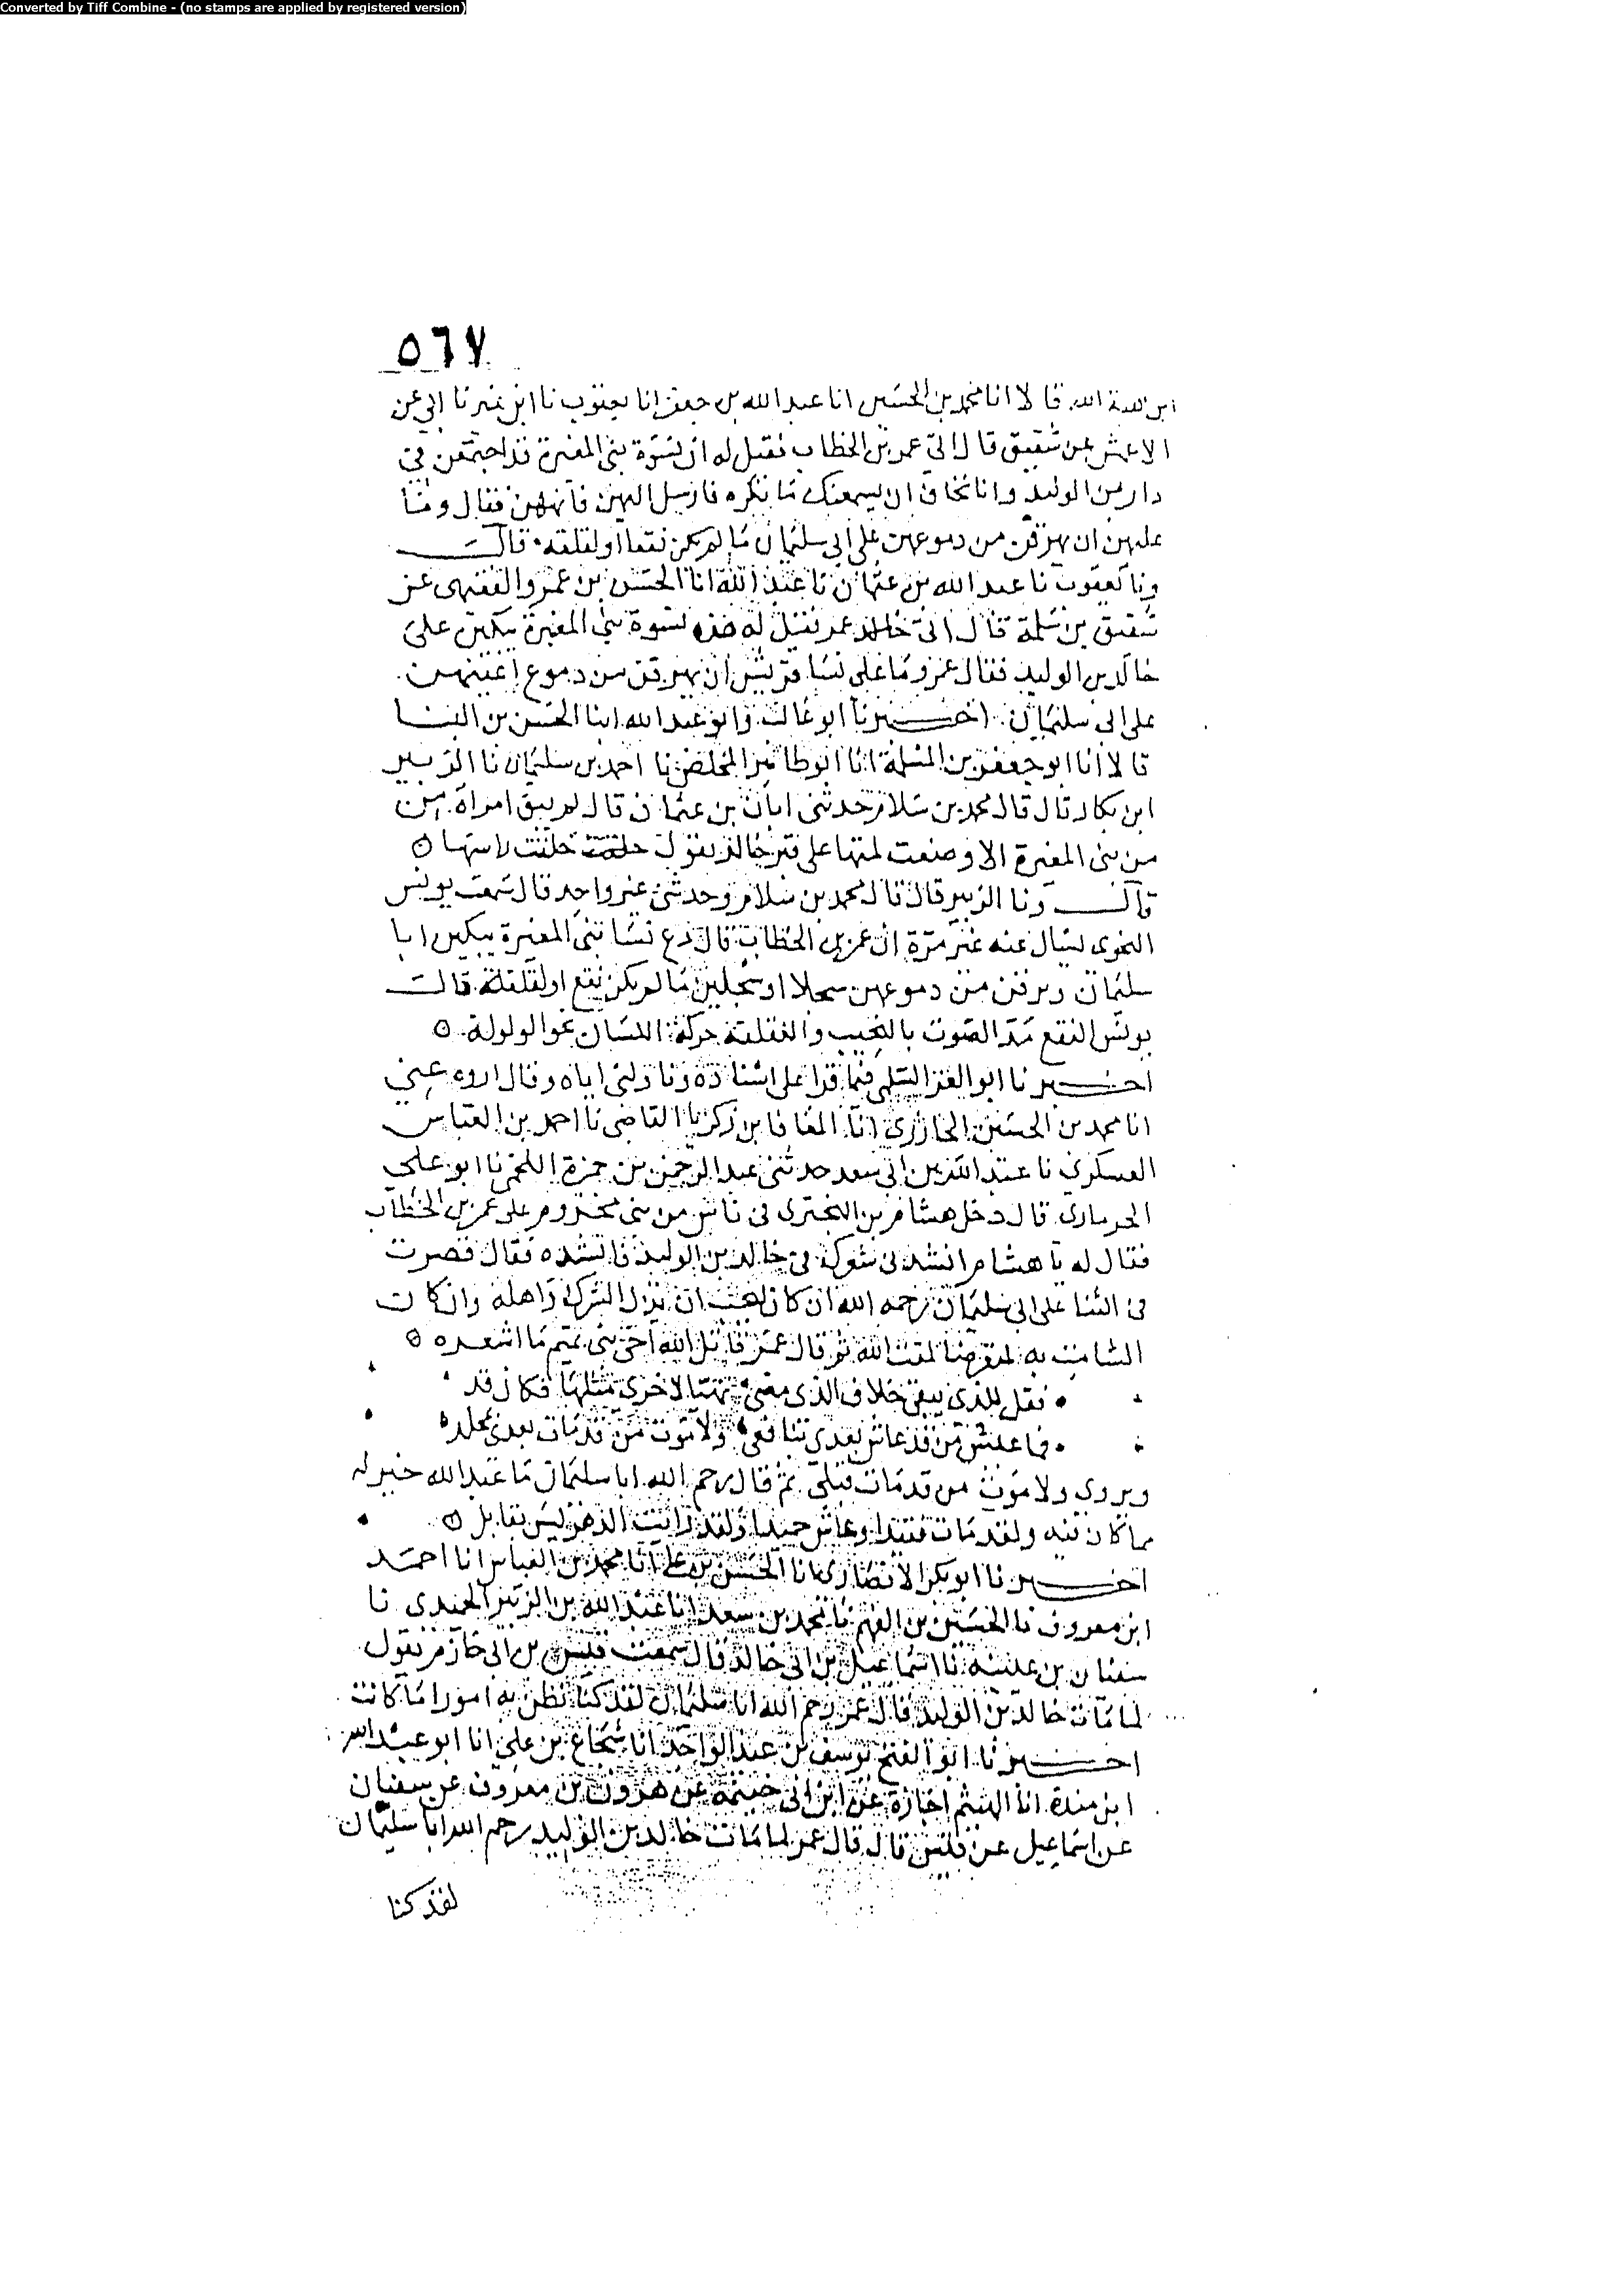 Converted by Tiff Combine - (no stamps are applied by registered version)
٥٦٧
ابن هبة الله قالا انا محمد بن الحسين انا عبد الله بن جعفر انا يعقوب نا ابن نمير نا ابي عن
الاعمش عن شقيق قال اتي عمر بن الخطاب فقيل له ان نسوة بني المغيرة قد اجتمعن في
دار بن الوليد وانا نخاف ان يسمعنك ما تكره فارسل اليهن فانههن فقال وما
عليهن ان يهرقن من دموعهن على ابي سليمان ما لم يكن نقعا او لقلقة قال
ونا يعقوب نا عبد الله بن عثمان نا عبد الله انا الحسن بن عمرو الفقيمي عن
شقيق بن سلمة قال اتي عمر فقيل له هذه نسوة بني المغيرة يبكين على
خالد بن الوليد فقال عمر وما على نسا قريش ان يهرقن من دموع اعينهن
على ابي سليمان اخبرنا ابو غالب وابو عبد الله ابنا الحسن بن البنا
قالا انا ابو جعفر بن المسلمة انا ابو طاهر المخلص نا احمد بن سليمان نا الزبير
ابن بكار قال قال محمد بن سلام حدثني ابان بن عثمان قال لم يبق امراة من
من بني المغيرة الا وضعت لمتها على قبر خالد يقول حلقت راسها
قال ونا الزبير قال قال محمد بن سلام وحدثني غير واحد قال سمعت يونس
النحوي يسال عنه غير مرة ان عمر بن الخطاب قال دع نسا بني المغيرة يبكين ابا
سليمان ويرقن من دموعهن سجلا او سجلين ما لم يكن نقع او لقلقة قال
يونس النقع مد الصوت بالنحيب واللقلقة حركة اللسان نحو الولولة
اخبرنا ابو العز السلمي فيما قرا علي اسناده وناولني اياه وقال اروه عني
انا محمد بن الحسين الجازري انا المعافا بن زكريا القاضي نا احمد بن العباس
العسكري نا عبد الله بن ابي سعد حدثني عبد الرحمن بن حمزة اللخمي نا ابو علي
الحرمازي قال دخل هشام بن البختري في ناس من بني مخزوم على عمر بن الخطاب
فقال له يا هشام انشدني شعرك في خالد بن الوليد فانشده فقال قصرت
في الثنا على ابي سليمان رحمه الله ان كان ليحب ان يذل الشرك واهله وان كان
الشامت به لمتعرضا لمقت الله ثم قال عمر قاتل الله اخي بني تميم ما اشعره
فقل للذي يبقى خلاف الذي مضى تهيا لاخرى مثلها فكان قد
فما عيش من قد عاش بعدي بنافعي ولا موت من قد مات بعدي بمخلدي
ويروى ولا موت من قد مات قبلي ثم قال رحم الله ابا سليمان ما عند الله خير له
مما كان فيه ولقد مات فقيدا وعاش حميدا ولقد رايت الدهر ليس بقايل
اخبرنا ابو بكر الانصاري انا الحسن بن علي انا محمد بن العباس انا احمد
ابن معروف نا الحسين بن الفهم نا محمد بن سعد انا عبد الله بن الزبير الحميدي نا
سفيان بن عيينة نا اسماعيل بن ابي خالد قال سمعت قيس بن ابي حازم يقول
لما مات خالد بن الوليد قال عمر رحم الله ابا سليمان لقد كنا نظن به امورا ما كانت
اخبرنا ابو الفتح يوسف بن عبد الواحد انا شجاع بن علي انا ابو عبد الله
ابن مندة انا الهيثم اجازة عن ابن ابي خيثمة عن هرون بن معروف عن سفيان
عن اسماعيل عن قيس قال قال عمر لما مات خالد بن الوليد رحم الله ابا سليمان
لقد كنا